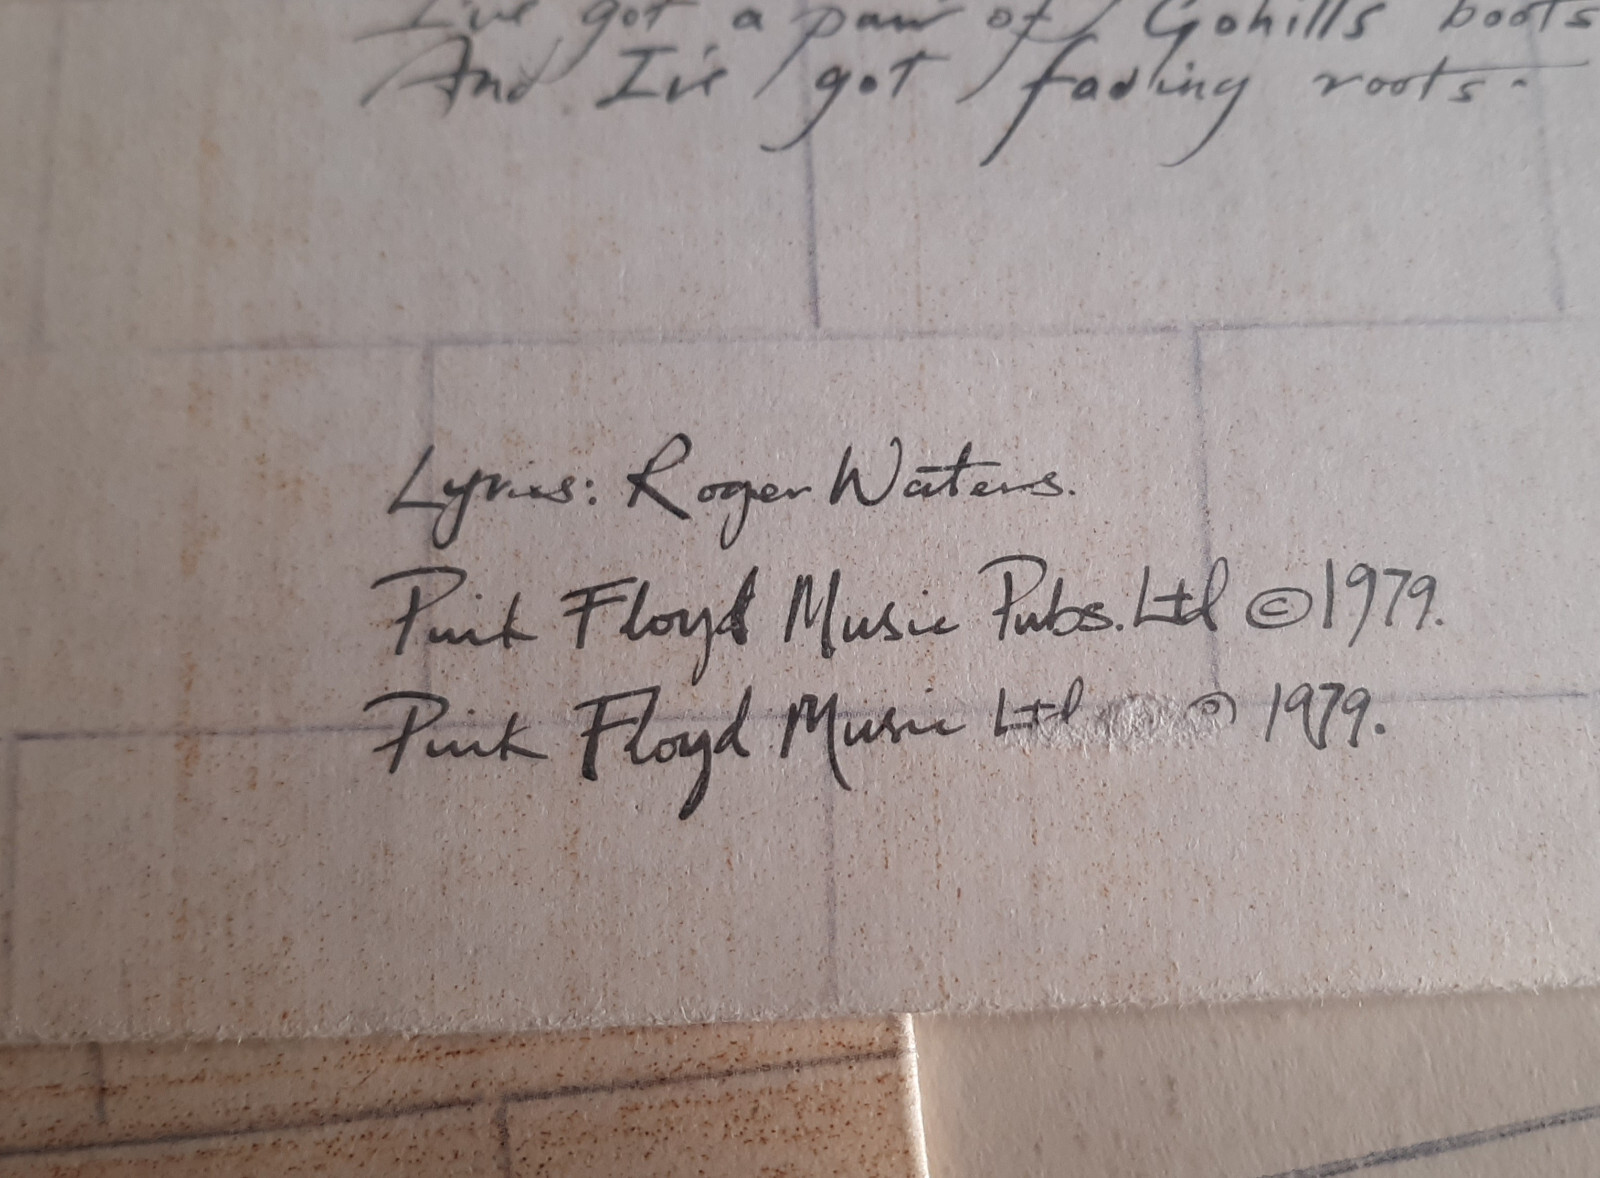 I've got a pair of Gohills boots
And I've got fading roots.
Lyrics: Roger Waters.
Pink Floyd Music Pubs. Ltd © 1979.
Pink Floyd Music Ltd ℗ 1979.